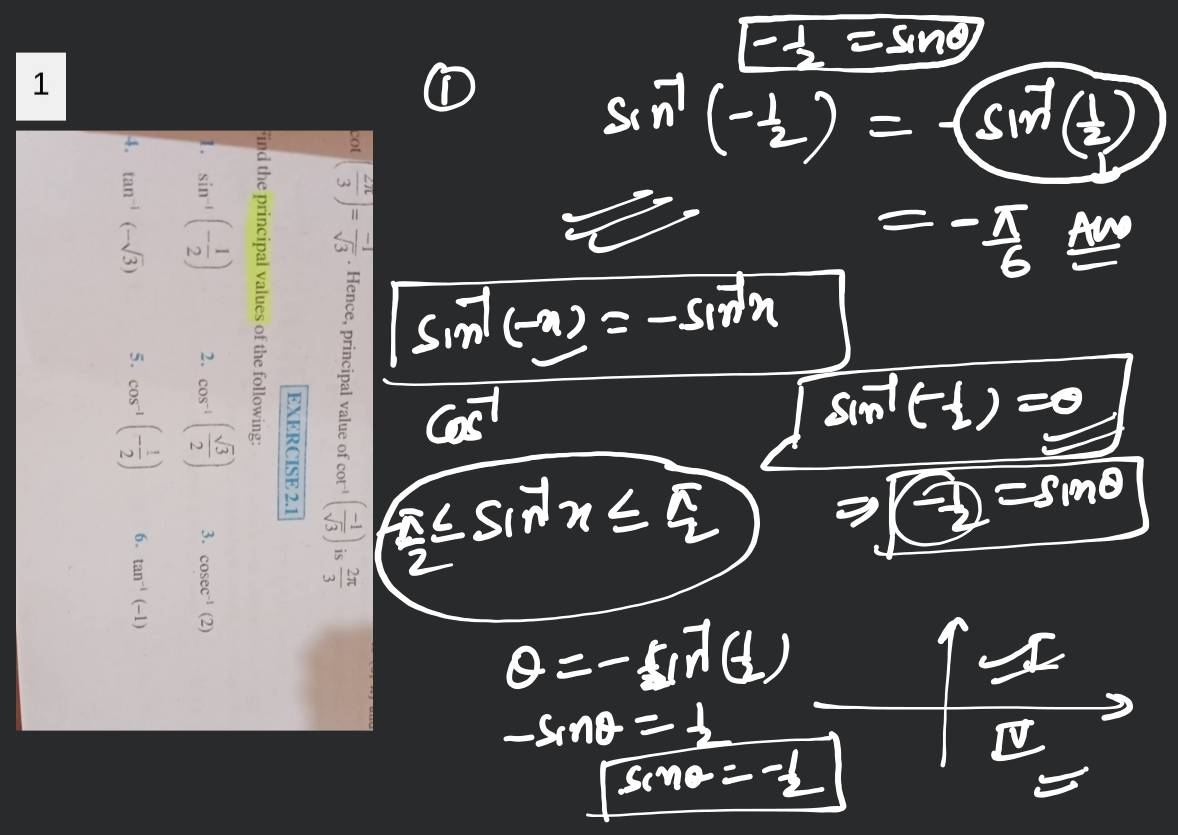 1
cot (2π/3) = -1/√3. Hence, principal value of cot⁻¹ (-1/√3) is 2π/3
EXERCISE 2.1
Find the principal values of the following:
1. sin⁻¹ (-1/2) 2. cos⁻¹ (√3/2) 3. cosec⁻¹ (2)
4. tan⁻¹ (-√3) 5. cos⁻¹ (-1/2) 6. tan⁻¹ (-1)
-1/2 = sinθ
① sin⁻¹ (-1/2) = -sin⁻¹ (1/2)
= -π/6 Ans
sin⁻¹ (-x) = -sin⁻¹x
cos⁻¹
sin⁻¹ (-1/2) = θ
-π/2 ≤ sin⁻¹x ≤ π/2
⇒ -1/2 = sinθ
θ = -sin⁻¹ (1/2)
-sinθ = 1/2
sinθ = -1/2
I
IV